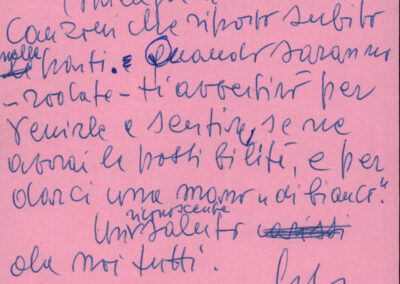 Canzoni che subito
nelle
parti. Quando saranno
-rodate- ti avvertirò per
venirle a sentire, se ne
avrai la possibilità, e per
darci una mano "di bianco".
riconoscente
Un saluto
da noi tutti.